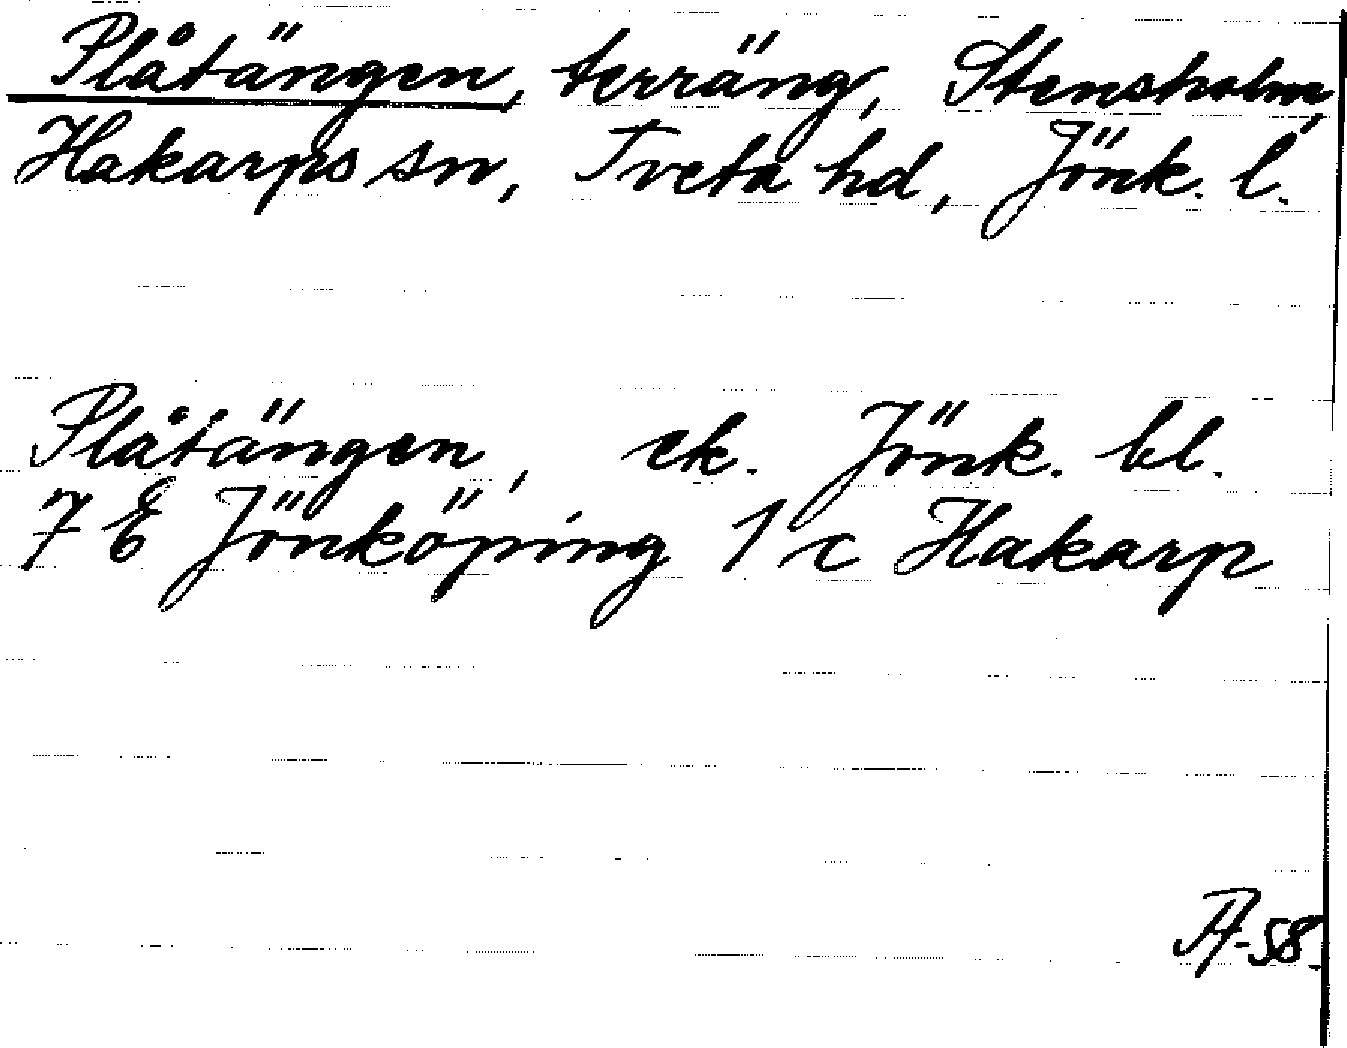 Plåtängen, terräng, Stensholm,
Hakarps sn, Tveta hd, Jönk. l.
Plåtängen, ek. Jönk. bl.
7 E Jönköping 1 c Hakarp
-58.